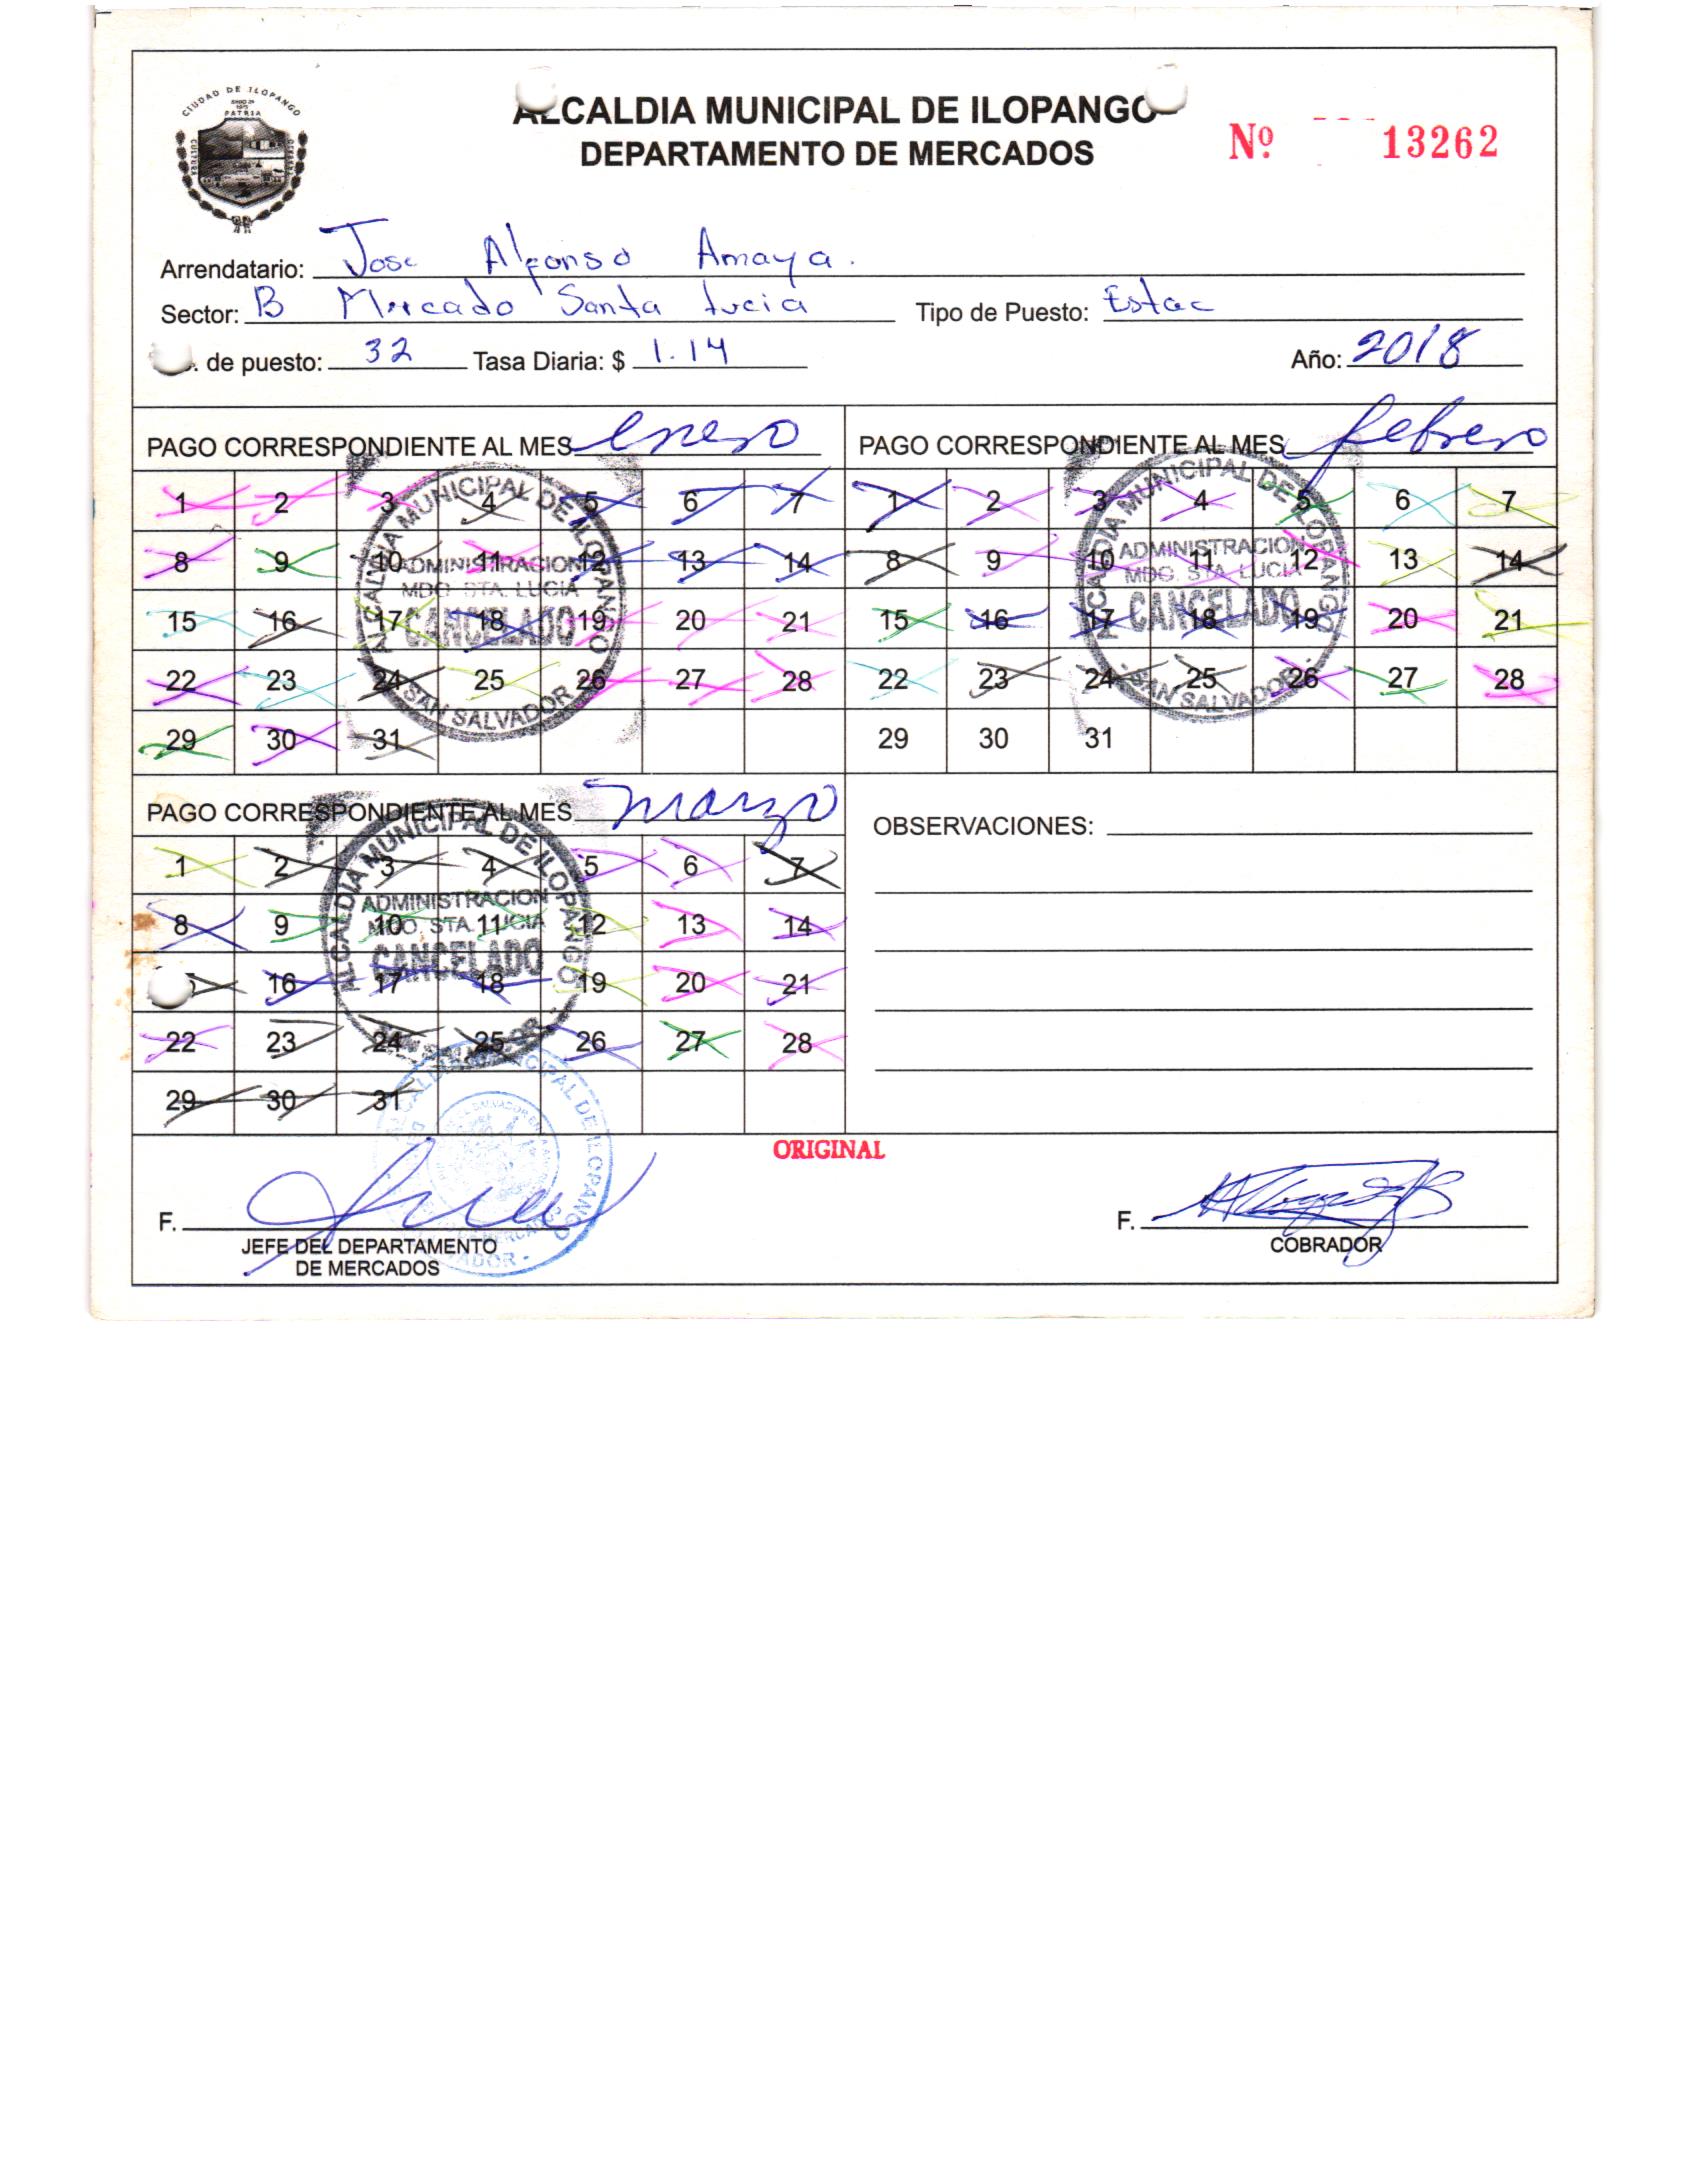 CIUDAD DE ILOPANGO
PATRIA
CULTURA
ALCALDIA MUNICIPAL DE ILOPANGO
DEPARTAMENTO DE MERCADOS
Nº 13262
Arrendatario: Jose Alfonso Amaya.
Sector: B Mercado Santa Lucia Tipo de Puesto: Estac
. de puesto: 32 Tasa Diaria: $ 1.14 Año: 2018
PAGO CORRESPONDIENTE AL MES enero
1 2 3 4 5 6 7
8 9 10 11 12 13 14
15 16 17 18 19 20 21
22 23 24 25 26 27 28
29 30 31
ALCALDIA MUNICIPAL DE ILOPANGO
ADMINISTRACION
MDO. STA. LUCIA
CANCELADO
SAN SALVADOR
PAGO CORRESPONDIENTE AL MES febrero
1 2 3 4 5 6 7
8 9 10 11 12 13 14
15 16 17 18 19 20 21
22 23 24 25 26 27 28
29 30 31
ALCALDIA MUNICIPAL DE ILOPANGO
ADMINISTRACION
MDO. STA. LUCIA
CANCELADO
SAN SALVADOR
PAGO CORRESPONDIENTE AL MES marzo
1 2 3 4 5 6 7
8 9 10 11 12 13 14
16 17 18 19 20 21
22 23 24 25 26 27 28
29 30 31
ALCALDIA MUNICIPAL DE ILOPANGO
ADMINISTRACION
MDO. STA. LUCIA
CANCELADO
OBSERVACIONES:
ORIGINAL
F.
JEFE DEL DEPARTAMENTO
DE MERCADOS
F.
COBRADOR